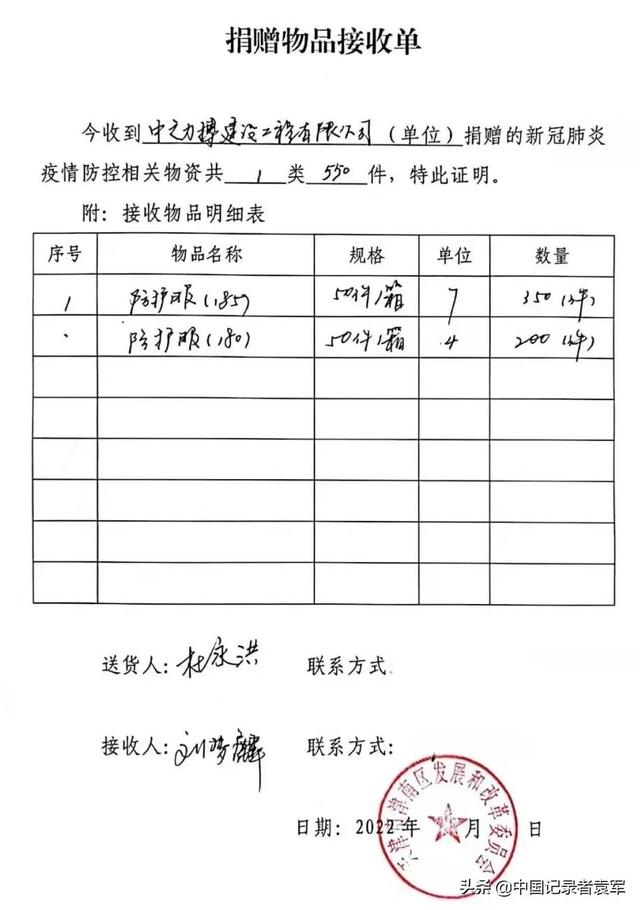 捐赠物品接收单
今收到中之力搏建设工程有限公司(单位)捐赠的新冠肺炎
疫情防控相关物资共 1 类 550 件,特此证明。
附:接收物品明细表
序号 物品名称 规格 单位 数量
1 防护服(185) 50件/箱 7 350(件)
· 防护服(180) 50件/箱 4 200(件)
送货人:杜永洪 联系方式
接收人:刘梦麟 联系方式:
天津市津南区发展和改革委员会
日期:2022年 月 日
头条@中国记录者袁军